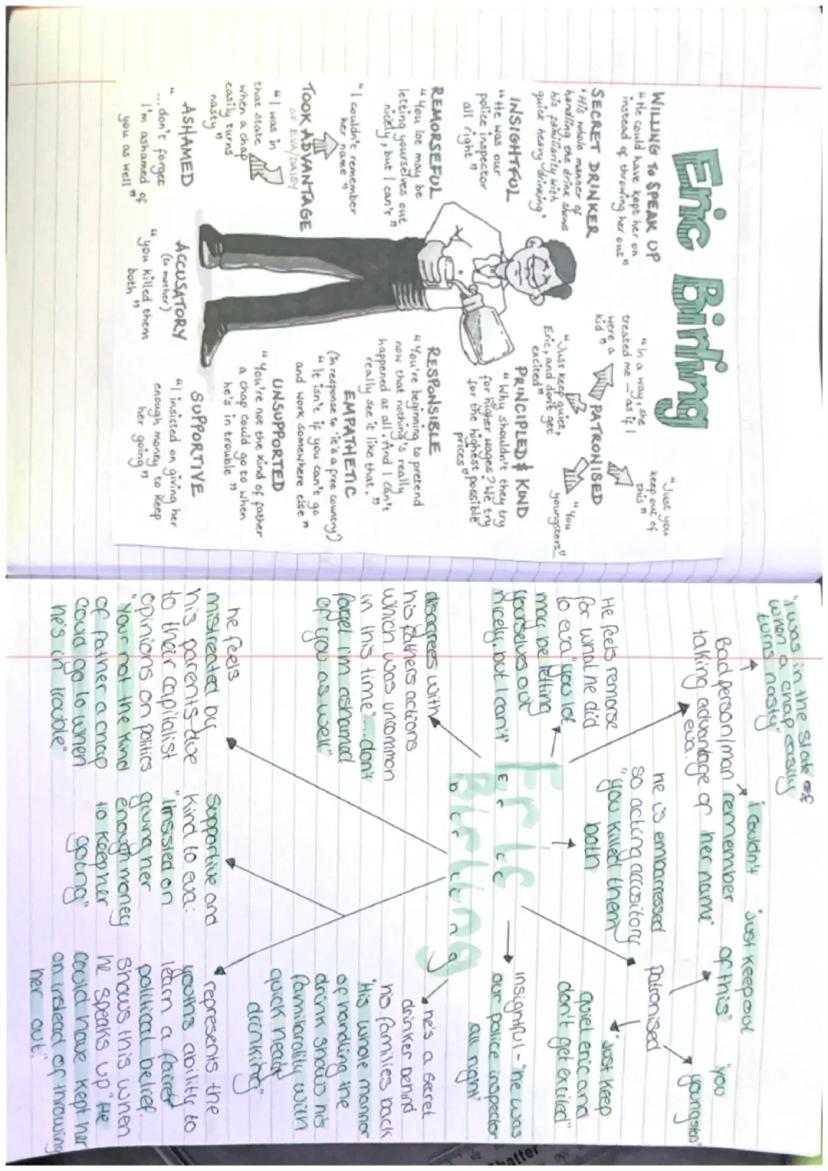 Eric Birling
WILLING TO SPEAK UP
"He could have kept her on
instead of throwing her out"
SECRET DRINKER
"His whole manner of
handling the drink shows
his familiarity with
quick heavy drinking"
INSIGHTFUL
"He was our
police inspector
all right"
REMORSEFUL
"You lot may be
letting yourselves out
nicely, but I can't"
"I couldn't remember
her name"
TOOK ADVANTAGE
OF EVA/DAISY
"I was in
that state
when a chap
easily turns
nasty"
ASHAMED
"...don't forget
I'm ashamed of
you as well"
ACCUSATORY
(to mother)
"you killed them
both"
"In a way, she
treated me - as if I
were a
kid"
"Just you
keep out of
this"
PATRONISED
"Just keep quiet,
Eric, and don't get
excited"
"You
youngsters"
PRINCIPLED & KIND
"Why shouldn't they try
for higher wages? We try
for the highest possible
prices"
RESPONSIBLE
"You're beginning to pretend
now that nothing's really
happened at all. And I can't
really see it like that."
EMPATHETIC
(In response to 'it's a free country')
"It isn't if you can't go
and work somewhere else"
UNSUPPORTED
"You're not the kind of father
a chap could go to when
he's in trouble"
SUPPORTIVE
"I insisted on giving her
enough money to keep
her going"
"I was in the state of
when a chap easily
turns nasty"
Bad person/man
taking advantage of
eva.
i couldn't
remember
her name"
"just keep out
of this"
"you
youngster"
patronised
"Just keep
quiet eric and
don't get excited"
He feels remorse
for what he did
to eva "you lot
may be letting
yourselves out
nicely, but I can't"
he is embarressed
so acting accusitory
"you killed them
both
Eric
Eric
Birling
Birling
insightful - "he was
our police inspector
all right"
disagrees with
his fathers actions
which was uncommon
in this time "...don't
forget i'm ashamed
of you as well"
he's a secret
drinker behind
his families back
"his whole manner
of handling the
drink shows his
familiarality with
quick heavy
drinking"
he feels
mistreated by
his parents due
to their capitalist
opinions on politics
"Your not the kind
of father a chap
could go to when
he's in trouble"
supportive and
kind to eva:
"I insisted on
giving her
enough money
to keep her
going"
represents the
youths ability to
learn a fairer
political belief.
Shows this when
he speaks up "He
could have kept her
on instead of throwing
her out."